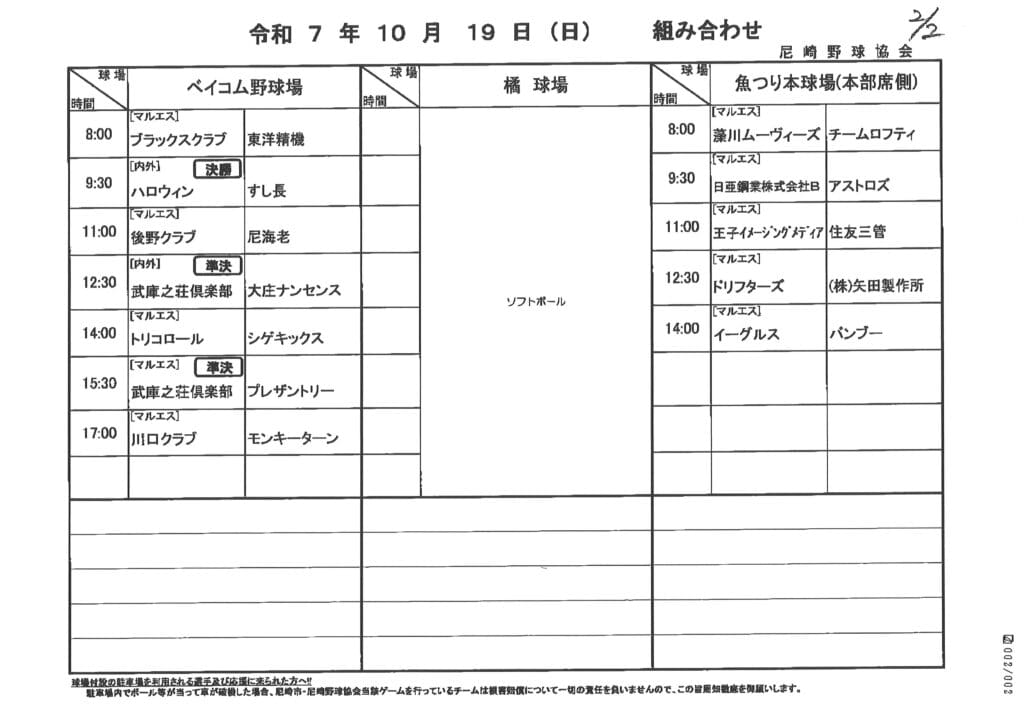 2/2
令和 7 年 10 月 19 日 (日) 組み合わせ
尼崎野球協会
球場 時間 ベイコム野球場 球場 時間 橘 球場 球場 時間 魚つり本球場(本部席側)
8:00 [マルエス] ブラックスクラブ 東洋精機
9:30 [内外] 決勝 ハロウィン すし長
11:00 [マルエス] 後野クラブ 尼海老
12:30 [内外] 準決 武庫之荘倶楽部 大庄ナンセンス
14:00 [マルエス] トリコロール シゲキックス
15:30 [マルエス] 準決 武庫之荘倶楽部 プレザントリー
17:00 [マルエス] 川口クラブ モンキーターン
ソフトボール
8:00 [マルエス] 藻川ムーヴィーズ チームロフティ
9:30 [マルエス] 日亜鋼業株式会社B アストロズ
11:00 [マルエス] 王子ｲﾒｰｼﾞﾝｸﾞﾒﾃﾞｨｱ 住友三管
12:30 [マルエス] ドリフターズ (株)矢田製作所
14:00 [マルエス] イーグルス バンブー
球場付設の駐車場を利用される選手及び応援に来られた方へ!!
駐車場内でボール等が当って車が破損した場合、尼崎市・尼崎野球協会当該ゲームを行っているチームは損害賠償について一切の責任を負いませんので、この旨周知徹底を御願いします。
002/002